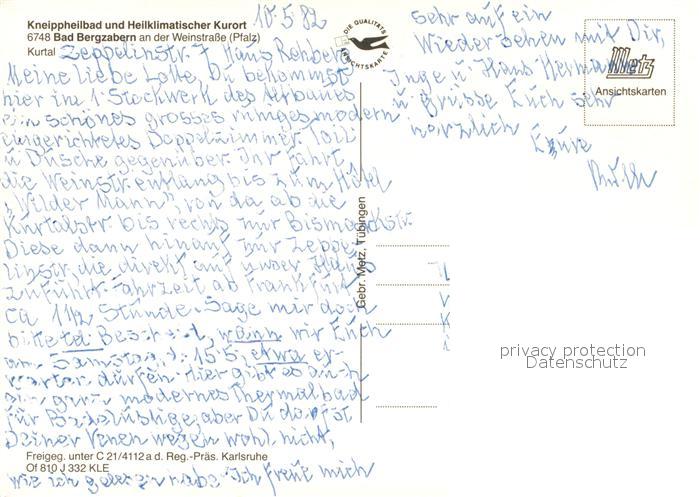 10.5.82
Kneippheilbad und Heilklimatischer Kurort
6748 Bad Bergzabern an der Weinstraße (Pfalz)
Kurtal Zeppelinstr. 7 Haus Rehberg
Meine liebe Lotte, Du bekommst
hier im 1. Stockwerk des Anbaues
ein schönes grosses ruhiges modern
eingerichtetes Doppelzimmer. Toil.
u Dusche gegenüber. Ihr fahrt
die Weinstr. entlang bis zum Hotel
"Wilder Mann", von da ab die
Kurtalstr. bis rechts zur Bismarckstr.
Diese dann hinauf zur Zeppe-
linstr. die direkt auf unser Haus
zuführt. Fahrzeit ab Frankfurt
ca 1 1/2 Stunde. Sage mir doch
bitte Bescheid, wann wir Euch
am Samstag, d. 15.5. etwa er-
warten dürfen. Hier gibt es auch
ein modernes Thermalbad
für Badelustige, aber Du darfst
Deiner Venen wegen wohl nicht,
Freigeg. unter C 21/4112 a d. Reg.-Präs. Karlsruhe
Of 810 J 332 KLE
wie ich gelesen habe. Ich freue mich
DIE QUALITÄTS ANSICHTSKARTE
Gebr. Metz, Tübingen
sehr auf ein
Wiedersehen mit Dir,
Inge u Hans Hermann
u grüsse Euch sehr
herzlich
Eure
Metz
Ansichtskarten
privacy protection
Datenschutz